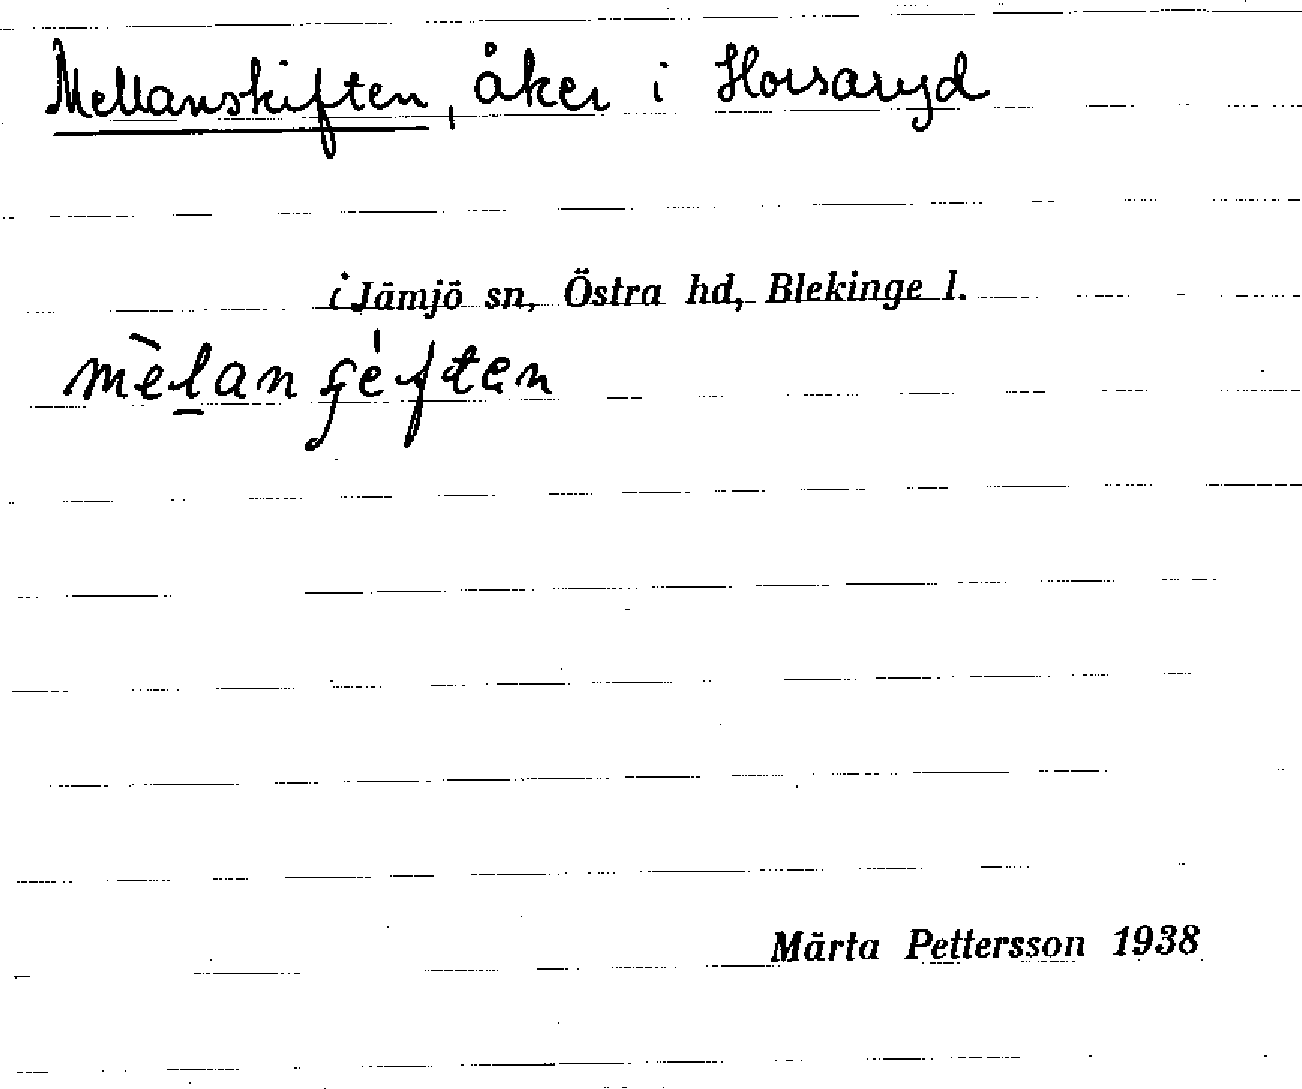 Mellanskiften, åker i Horsaryd
i Jämjö sn, Östra hd, Blekinge l.
mèlanʂéften
Märta Pettersson 1938